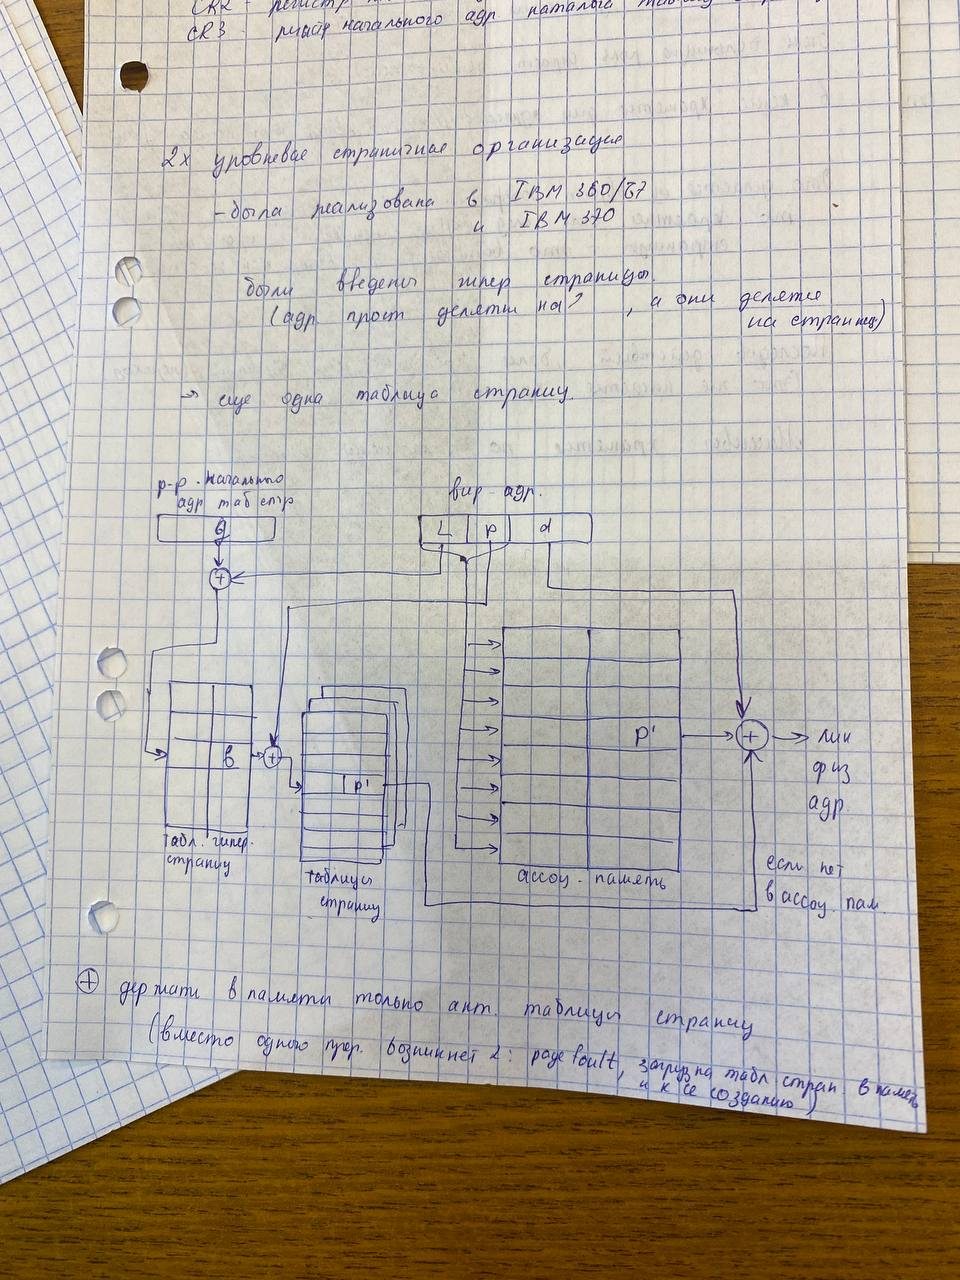 CR2 - регистр
CR3 - регистр начального адр каталога таблиц
2х уровневае страничная организация
- была реализована в IBM 360/67
и IBM 370
были введены гипер страницы.
(адр прост делятся на ? , а они делятся
на страниц)
→ еще одна таблица страниц.
р-р начального
адр таб стр
вир-адр.
a
L p d
+
B
+
p'
p'
+
лин
физ
адр.
табл. гипер.
страниц
таблицы
страниц
ассоц. память
если нет
в ассоц. пам.
⊕ держать в памяти только акт. таблицы страниц
(вместо одного прер. возникнет 2: page fault, загрузка табл стран. в память
и к ее созданию)